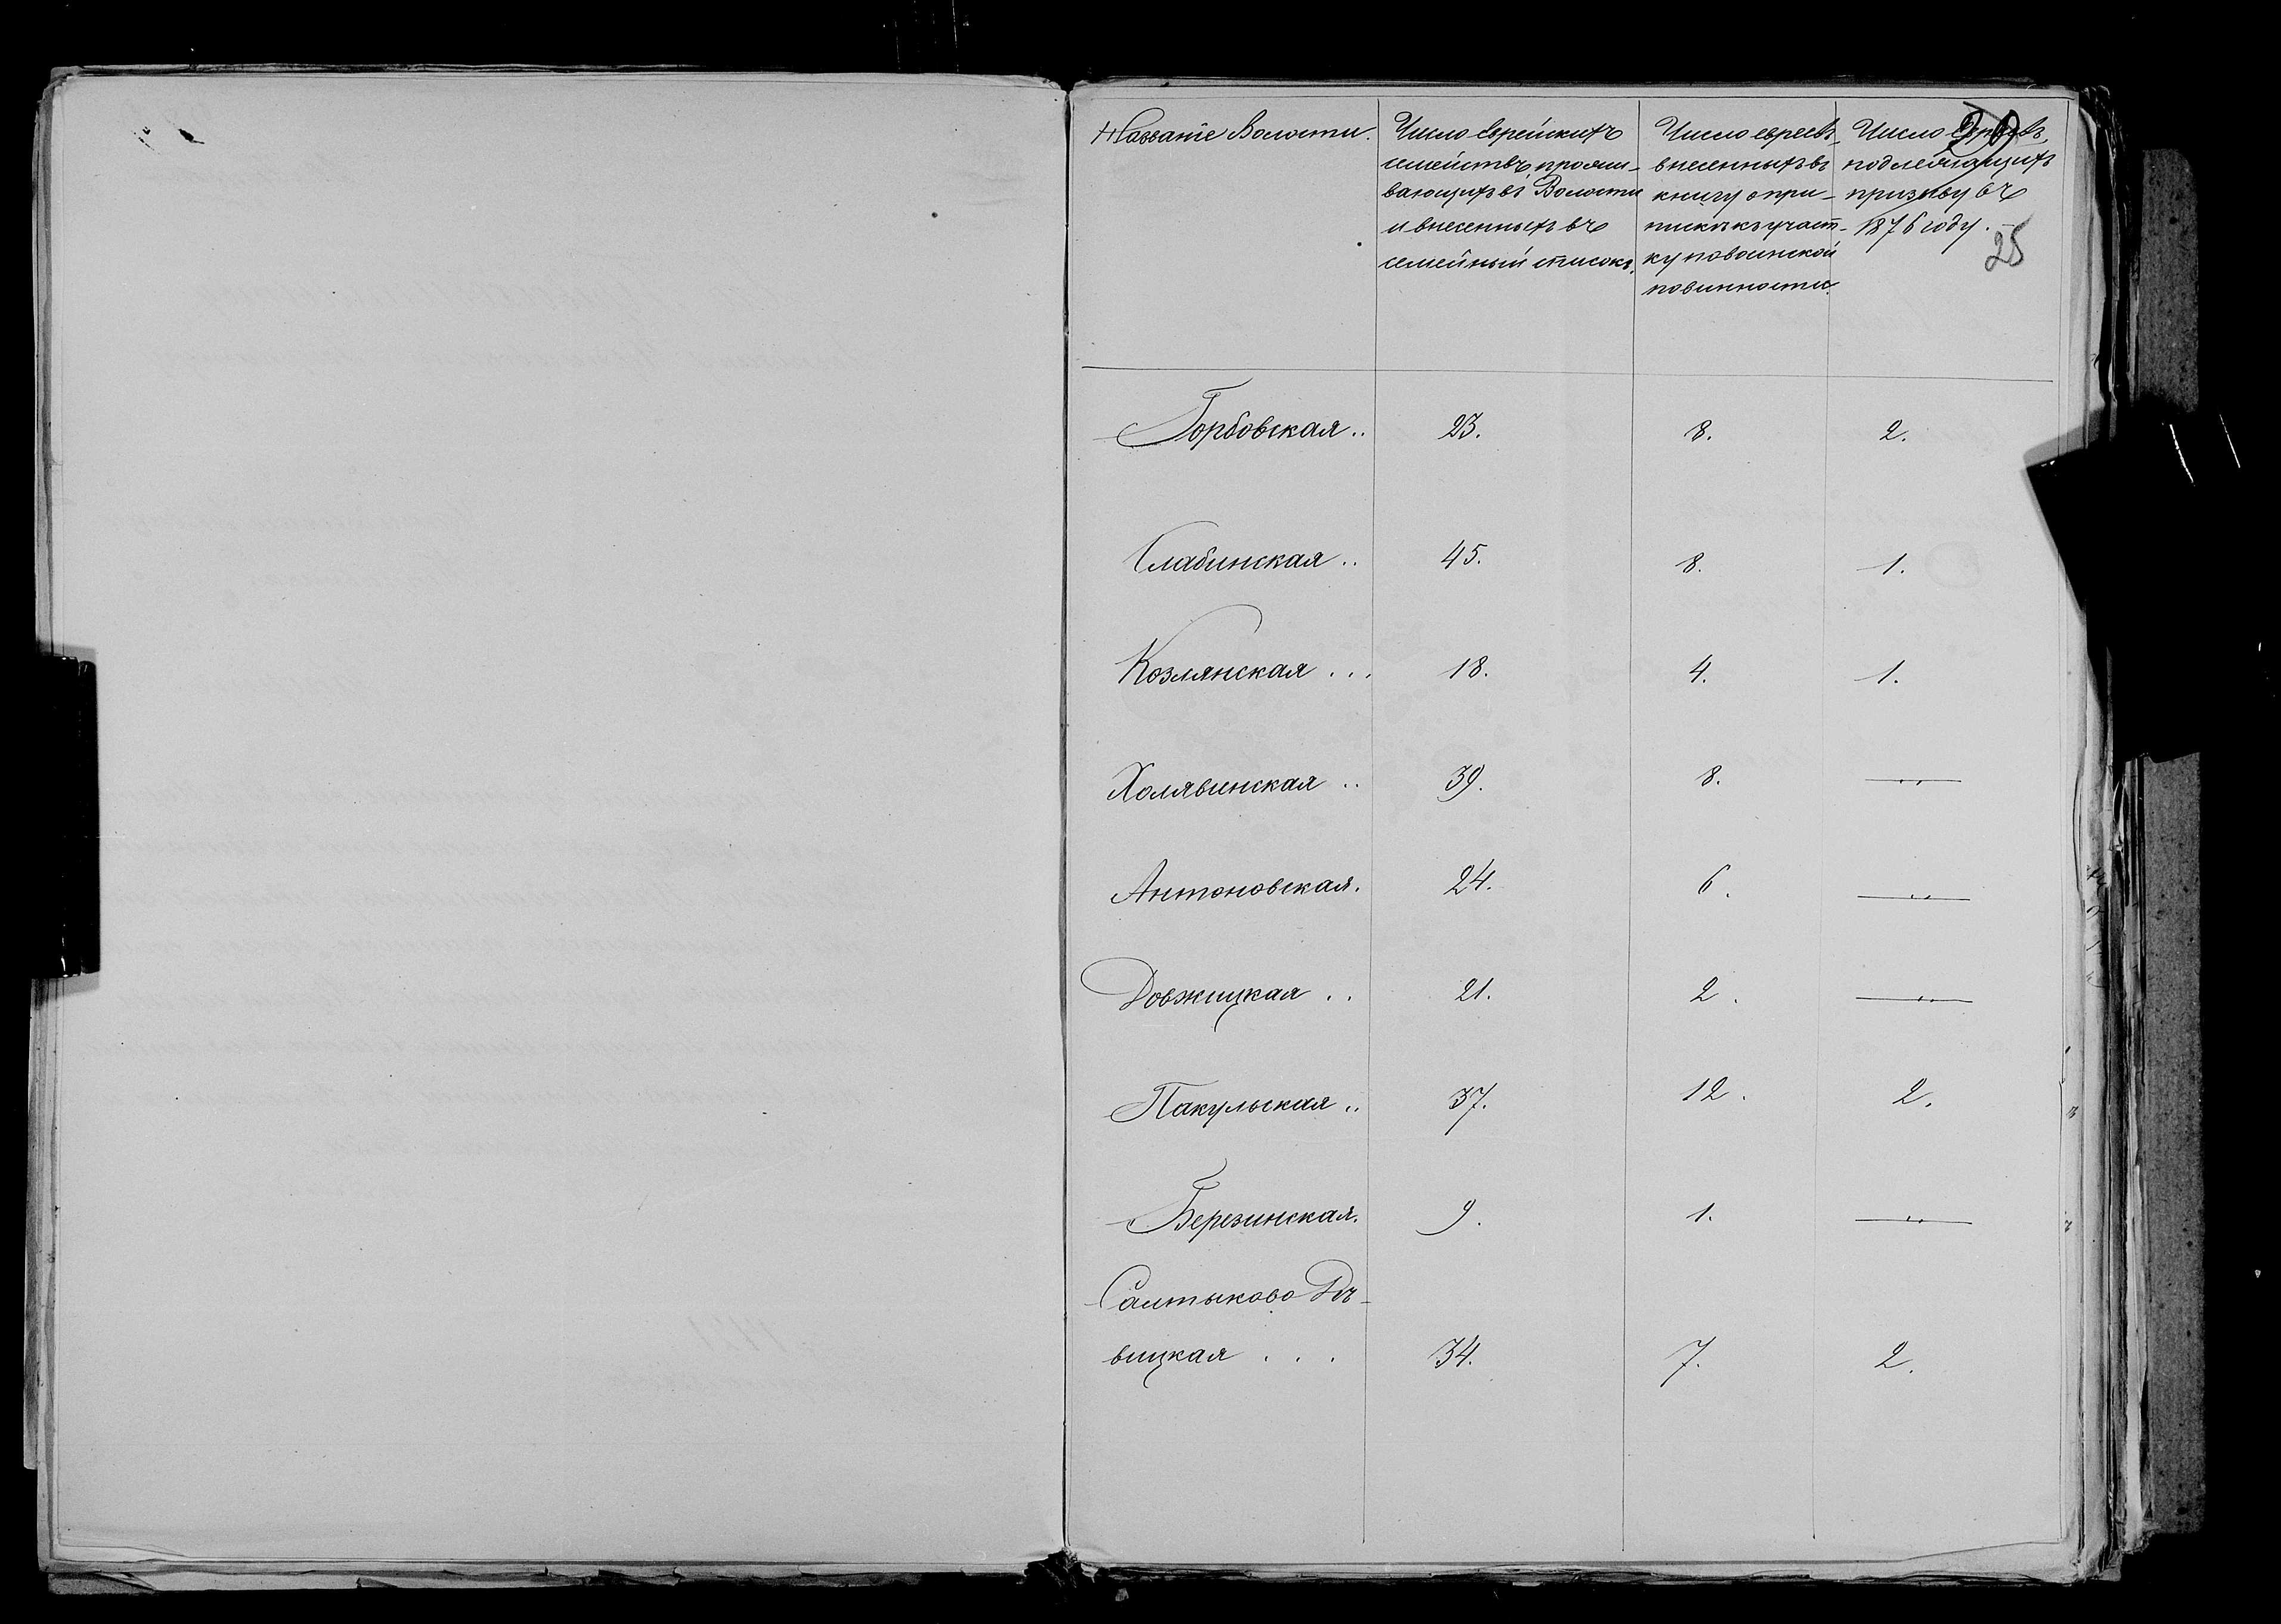 Названіе Волости. Число еврейскихъ Число евреевъ Число евреевъ
семействъ, прожи- внесенныхъ въ подлежащихъ
вающихъ въ Волости книгу о при- призыву въ
и внесенныхъ въ пискѣ къ участ- 1876 году.
семейный списокъ. ку по воинской 25
повинности.
Горбовская .. 23. 8. 2.
Слабинская .. 45. 8. 1.
Козлянская ... 18. 4. 1.
Холявинская .. 39. 8. — „ —
Антоновская. 24. 6. — „ —
Довжицкая .. 21. 2. — „ —
Пакульская .. 37. 12. 2.
Березинская. 9. 1. — „ —
Салтыково Дѣ-
вицкая ... 34. 7. 2.